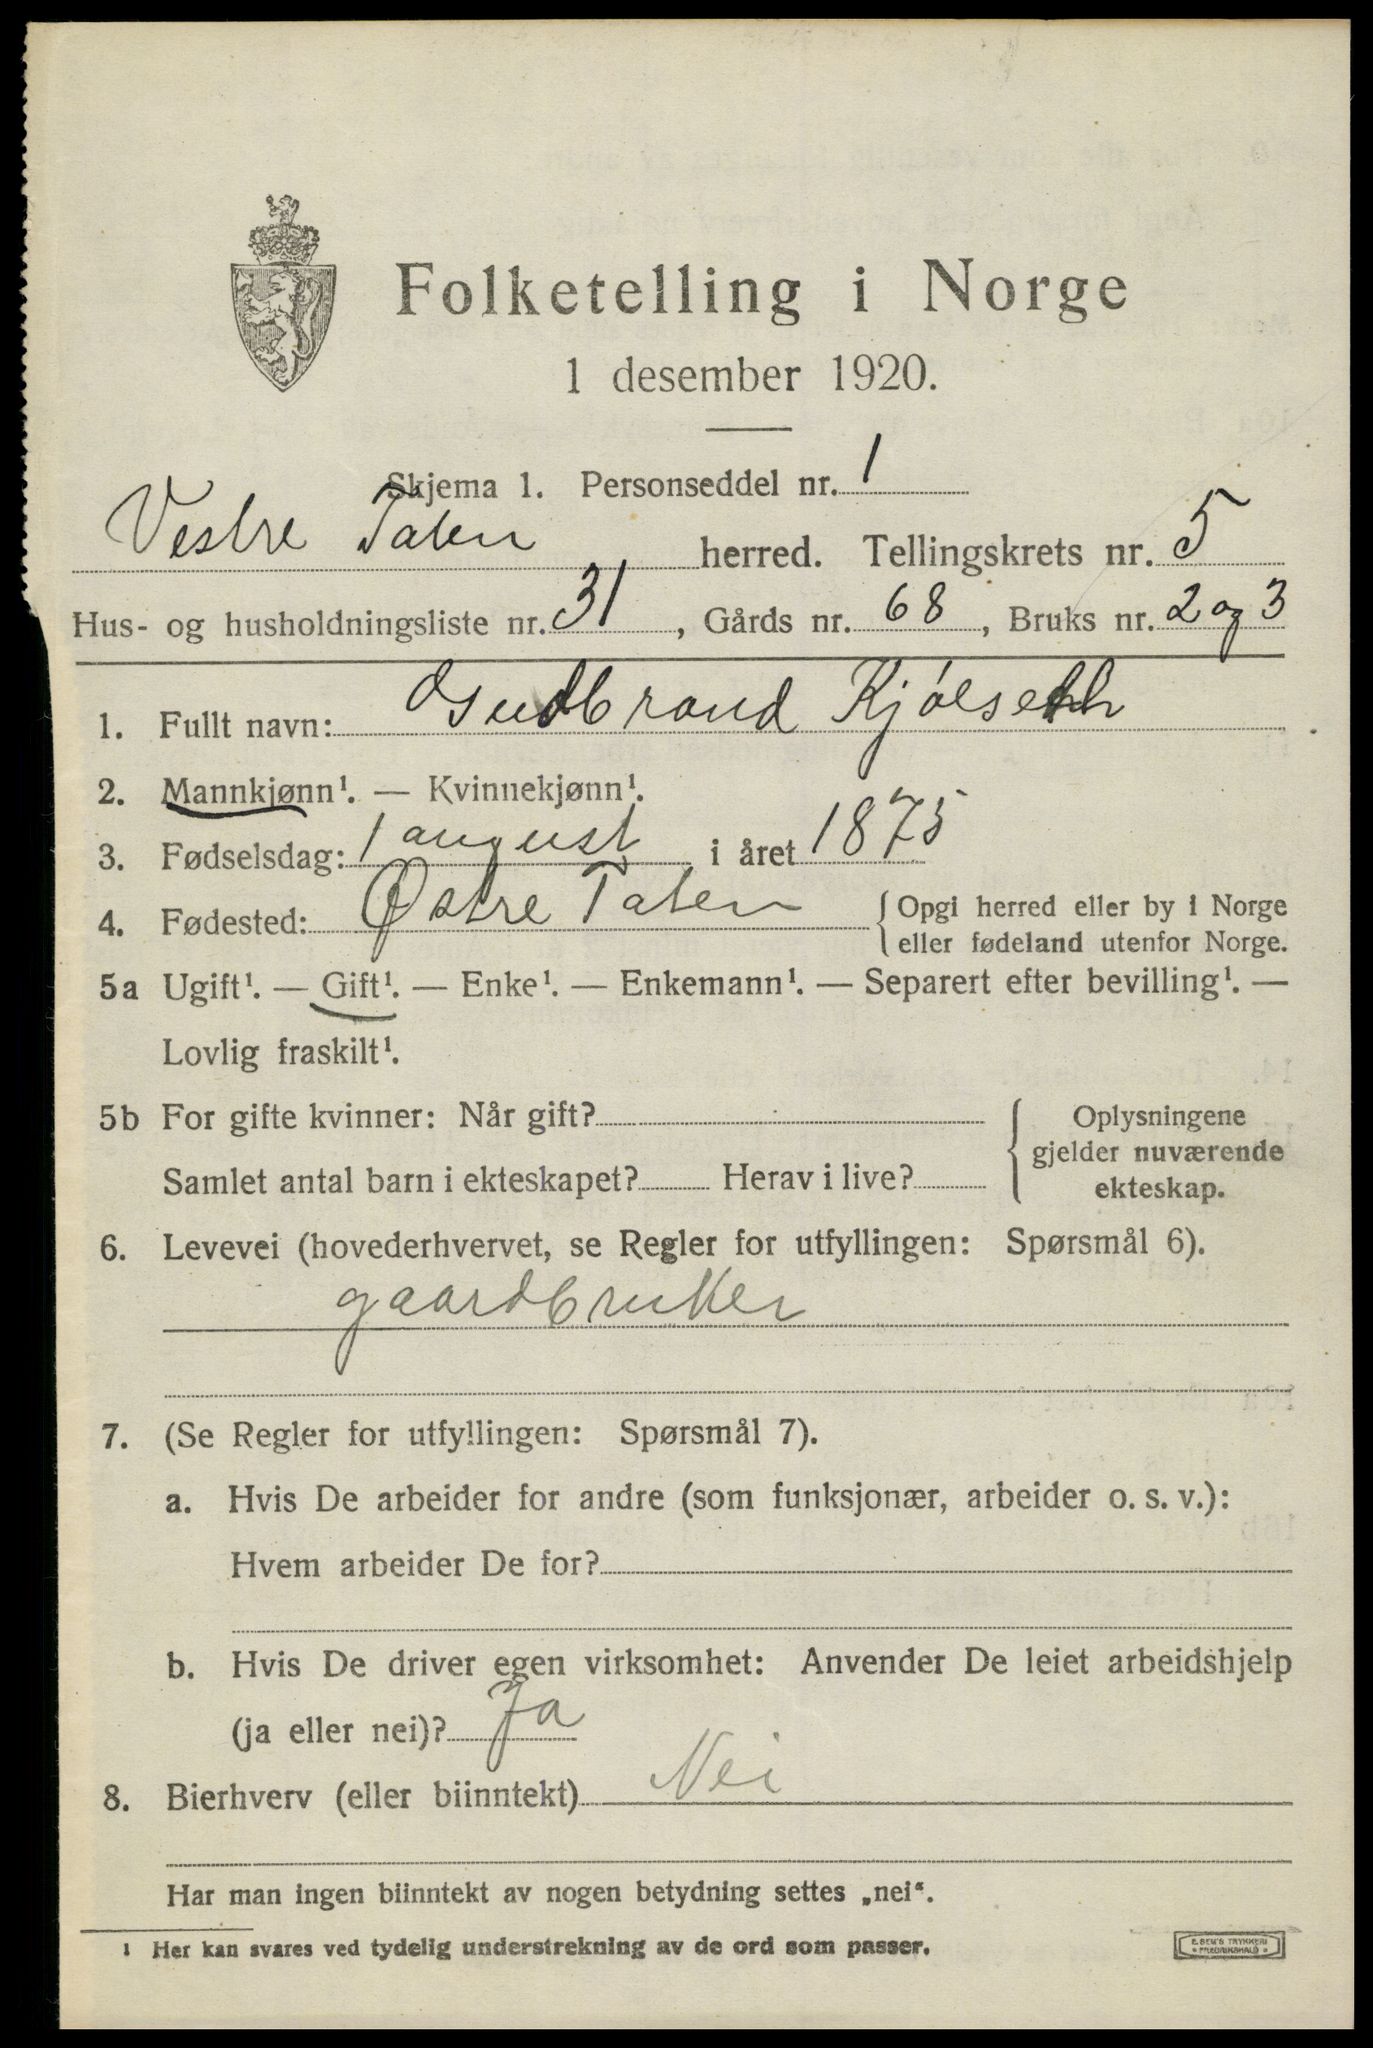 Folketelling i Norge
1 desember 1920.
Skjema 1. Personseddel nr. 1
Vestre Toten herred. Tellingskrets nr. 5
Hus- og husholdningsliste nr. 31, Gårds nr. 68, Bruks nr. 2 og 3
1. Fullt navn: Gudbrand Kjølseth
2. Mannkjønn¹. — Kvinnekjønn¹.
3. Fødselsdag: 1 august i året 1875
4. Fødested: Østre Toten { Opgi herred eller by i Norge
eller fødeland utenfor Norge.
5a Ugift¹. — Gift¹. — Enke¹. — Enkemann¹. — Separert efter bevilling¹. —
Lovlig fraskilt¹.
5b For gifte kvinner: Når gift? { Oplysningene
gjelder nuværende
Samlet antal barn i ekteskapet? Herav i live? ekteskap.
6. Levevei (hovederhvervet, se Regler for utfyllingen: Spørsmål 6).
gaardbruker
7. (Se Regler for utfyllingen: Spørsmål 7).
a. Hvis De arbeider for andre (som funksjonær, arbeider o. s. v.):
Hvem arbeider De for?
b. Hvis De driver egen virksomhet: Anvender De leiet arbeidshjelp
(ja eller nei)? Ja
8. Bierhverv (eller biinntekt) Nei
Har man ingen biinntekt av nogen betydning settes „nei“.
¹ Her kan svares ved tydelig understrekning av de ord som passer.
E. SEM'S TRYKKERI
FREDRIKSHALD